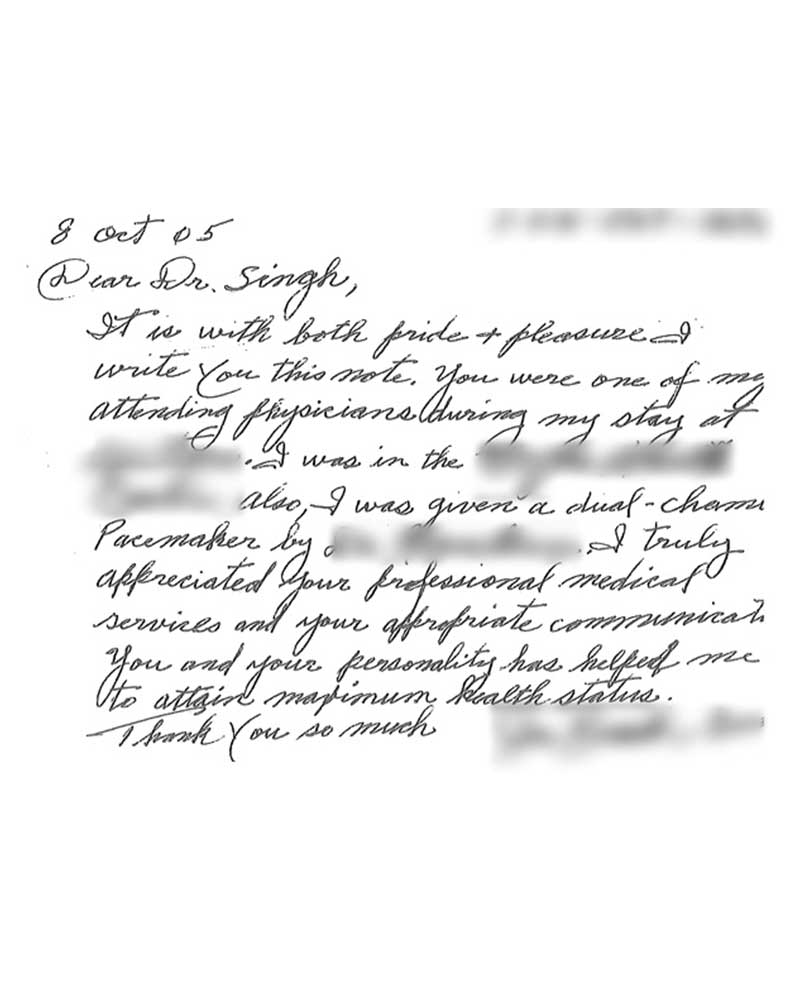 8 Oct 05
Dear Dr. Singh,
It is with both pride + pleasure I
write You this note. You were one of my
attending physicians during my stay at
. I was in the
also, I was given a dual-cham
Pacemaker by . I truly
appreciated your professional medical
services and your appropriate communicat
You and your personality has helped me
to attain maximum health status.
Thank You so much